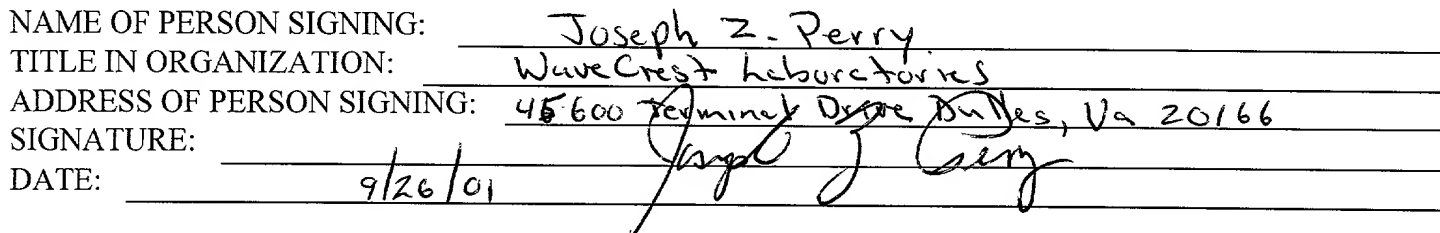 NAME OF PERSON SIGNING: Joseph Z. Perry
TITLE IN ORGANIZATION: WaveCrest Laboratories
ADDRESS OF PERSON SIGNING: 45600 Terminal Drive Dulles, Va 20166
SIGNATURE: Joseph Z Perry
DATE: 9/26/01